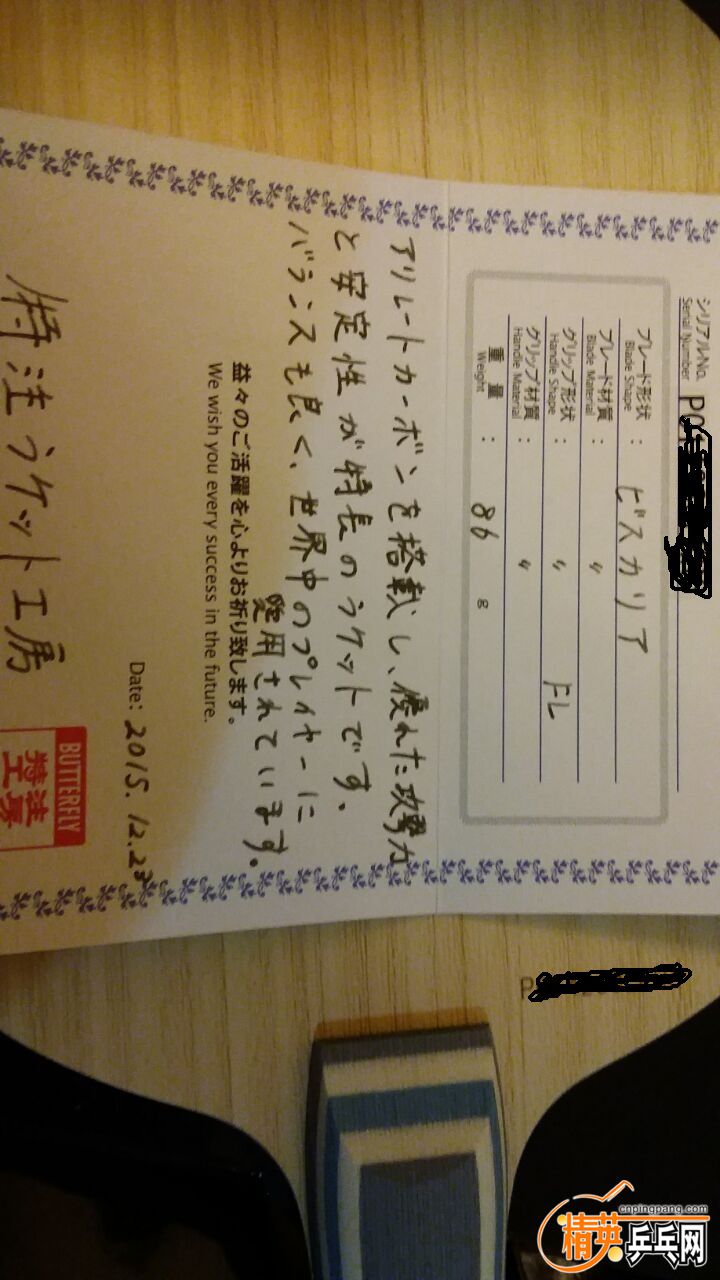 シリアルNo.
Serial Number
ブレード形状 : ビスカリア
Blade Shape
ブレード材質 : 〃
Blade Material
グリップ形状 : 〃 FL
Handle Shape
グリップ材質 : 〃
Handle Material
重量 : 86 g
Weight
アリレートカーボンを搭載し、優れた攻撃力
と安定性が特長のラケットです。
バランスも良く、世界中のプレイヤーに
愛用されています。
益々のご活躍を心よりお祈り致します。
We wish you every success in the future.
Date: 2015. 12.23
特注ラケット工房
BUTTERFLY
特注
工房
cnpingpang.com
精英乒乓网